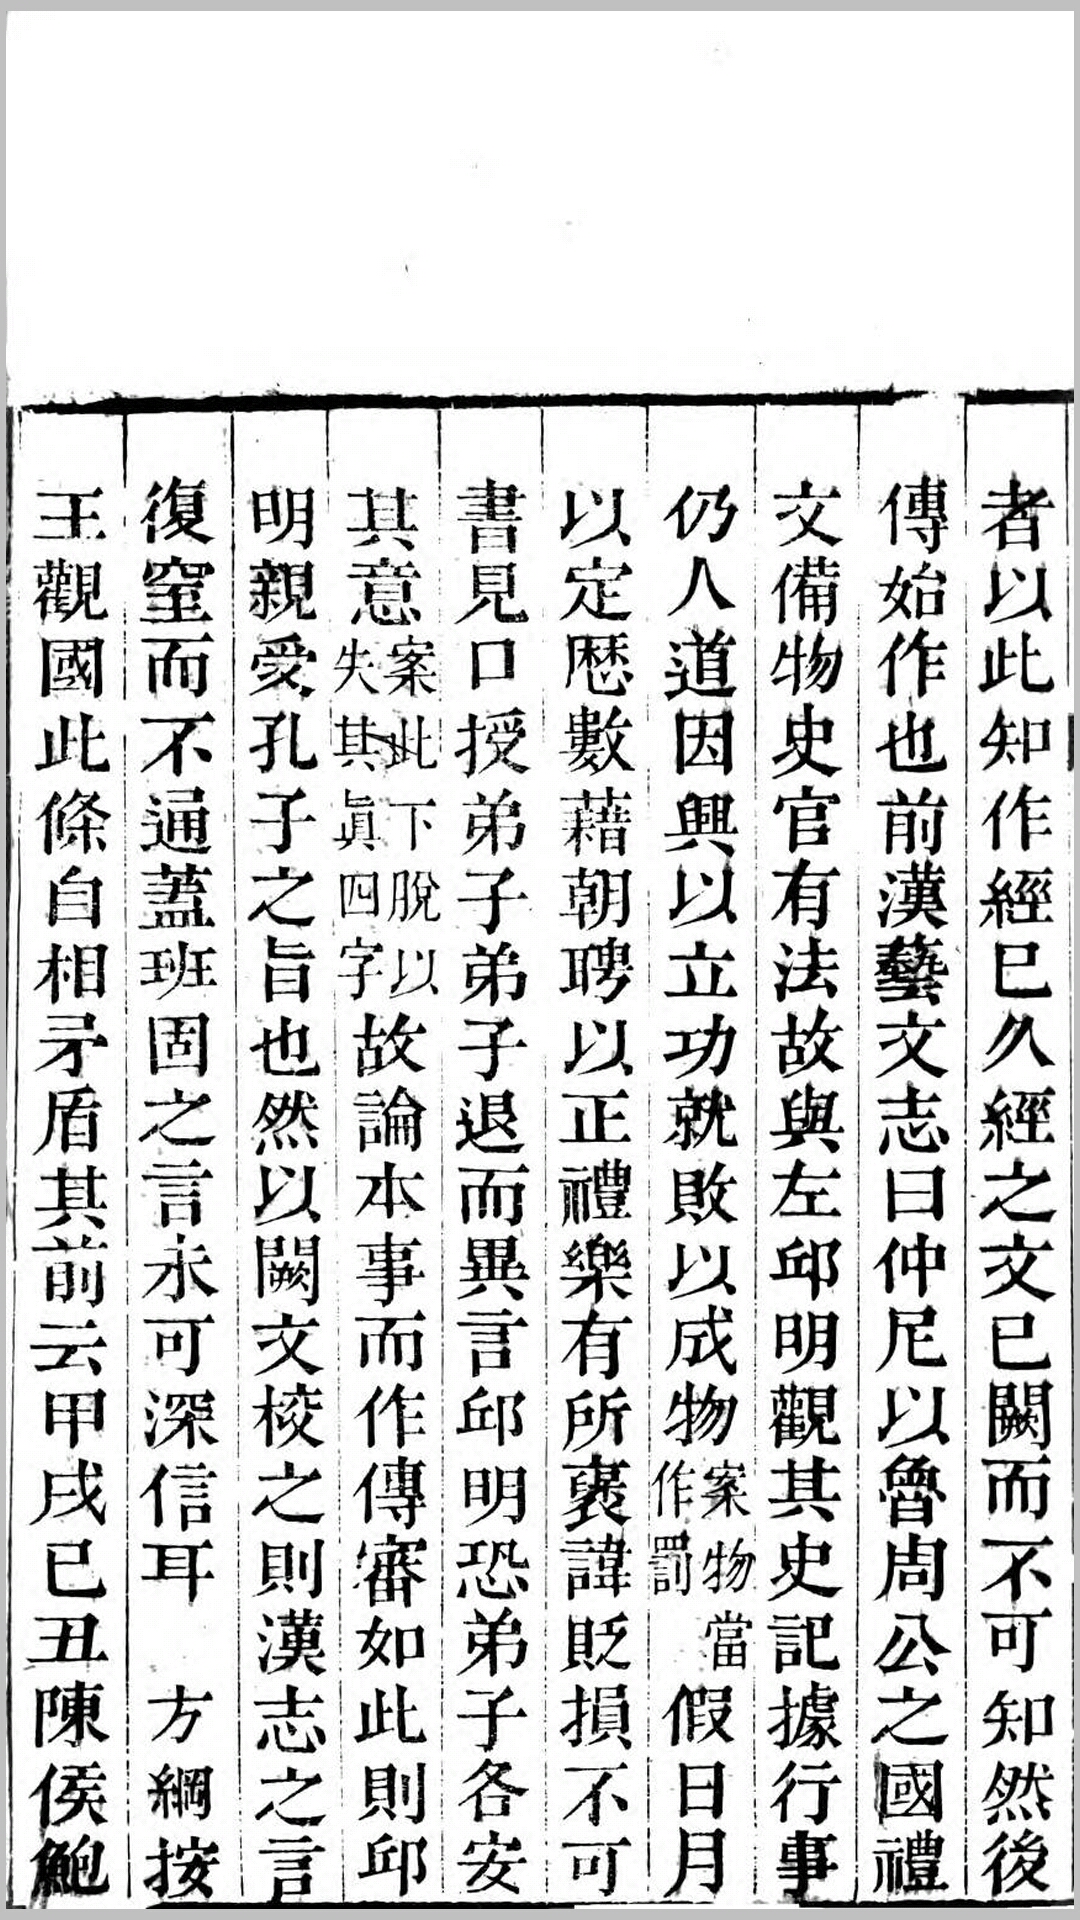 者以此知作經巳久經之文巳闕而不可知然後
傳始作也前漢藝文志曰仲尼以魯周公之國禮
文備物史官有法故與左邱明觀其史記據行事
仍人道因興以立功就敗以成物案物當作罰假日月
以定歴數藉朝聘以正禮樂有所襃諱貶損不可
書見口授弟子弟子退而異言邱明恐弟子各安
其意案此下脫以失其眞四字故論本事而作傳審如此則邱
明親愛孔子之旨也然以闕文校之則漢志之言
復窒而不通蓋班固之言未可深信耳　方綱按
王觀國此條自相矛盾其前云甲戌巳丑陳侯鮑